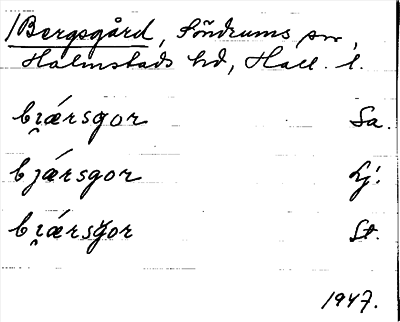 /Bergsgård, Söndrums sn,
Halmstads hd, Hall. l.
bi̯ærsgor Sa.
bjærsgor Lj.
bi̯ærsgor St.
1947.